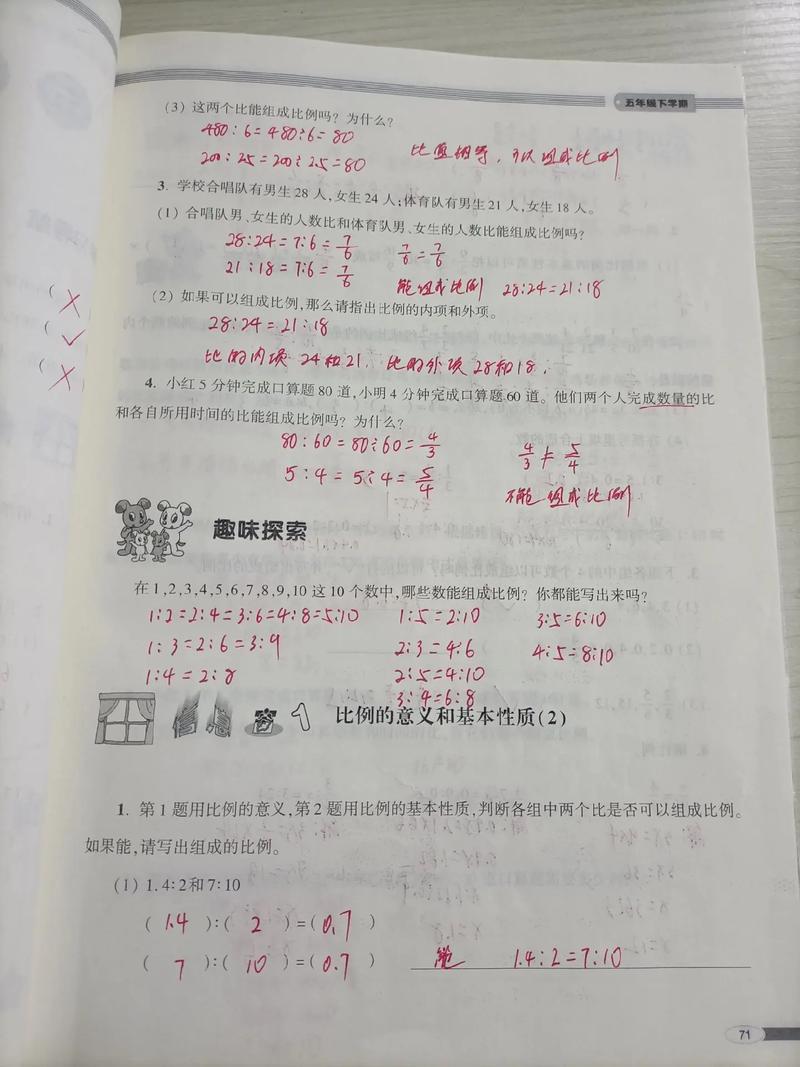 五年级下学期
(3) 这两个比能组成比例吗？为什么？
480:6=480÷6=80
200:25=200÷25=80
比值相等，可以组成比例
3. 学校合唱队有男生 28 人，女生 24 人；体育队有男生 21 人，女生 18 人。
(1) 合唱队男、女生的人数比和体育队男、女生的人数比能组成比例吗？
28:24=7:6=7/6 7/6=7/6
21:18=7:6=7/6 能组成比例 28:24=21:18
(2) 如果可以组成比例，那么请指出比例的内项和外项。
28:24=21:18
比的内项 24和21，比的外项 28和18.
4. 小红 5 分钟完成口算题 80 道，小明 4 分钟完成口算题 60 道。他们两个人完成数量的比
和各自所用时间的比能组成比例吗？为什么？
80:60=80÷60=4/3 4/3≠5/4
5:4=5÷4=5/4 不能组成比例
趣味探索
在 1,2,3,4,5,6,7,8,9,10 这 10 个数中，哪些数能组成比例？你都能写出来吗？
1:2=2:4=3:6=4:8=5:10 1:5=2:10 3:5=6:10
1:3=2:6=3:9 2:3=4:6 4:5=8:10
1:4=2:8 2:5=4:10
3:4=6:8
信息窗1 比例的意义和基本性质(2)
1. 第 1 题用比例的意义，第 2 题用比例的基本性质，判断各组中两个比是否可以组成比例。
如果能，请写出组成的比例。
(1) 1.4:2和7:10
(1.4):(2)=(0.7)
(7):(10)=(0.7) 能 1.4:2=7:10
71
(×
(✓
(×